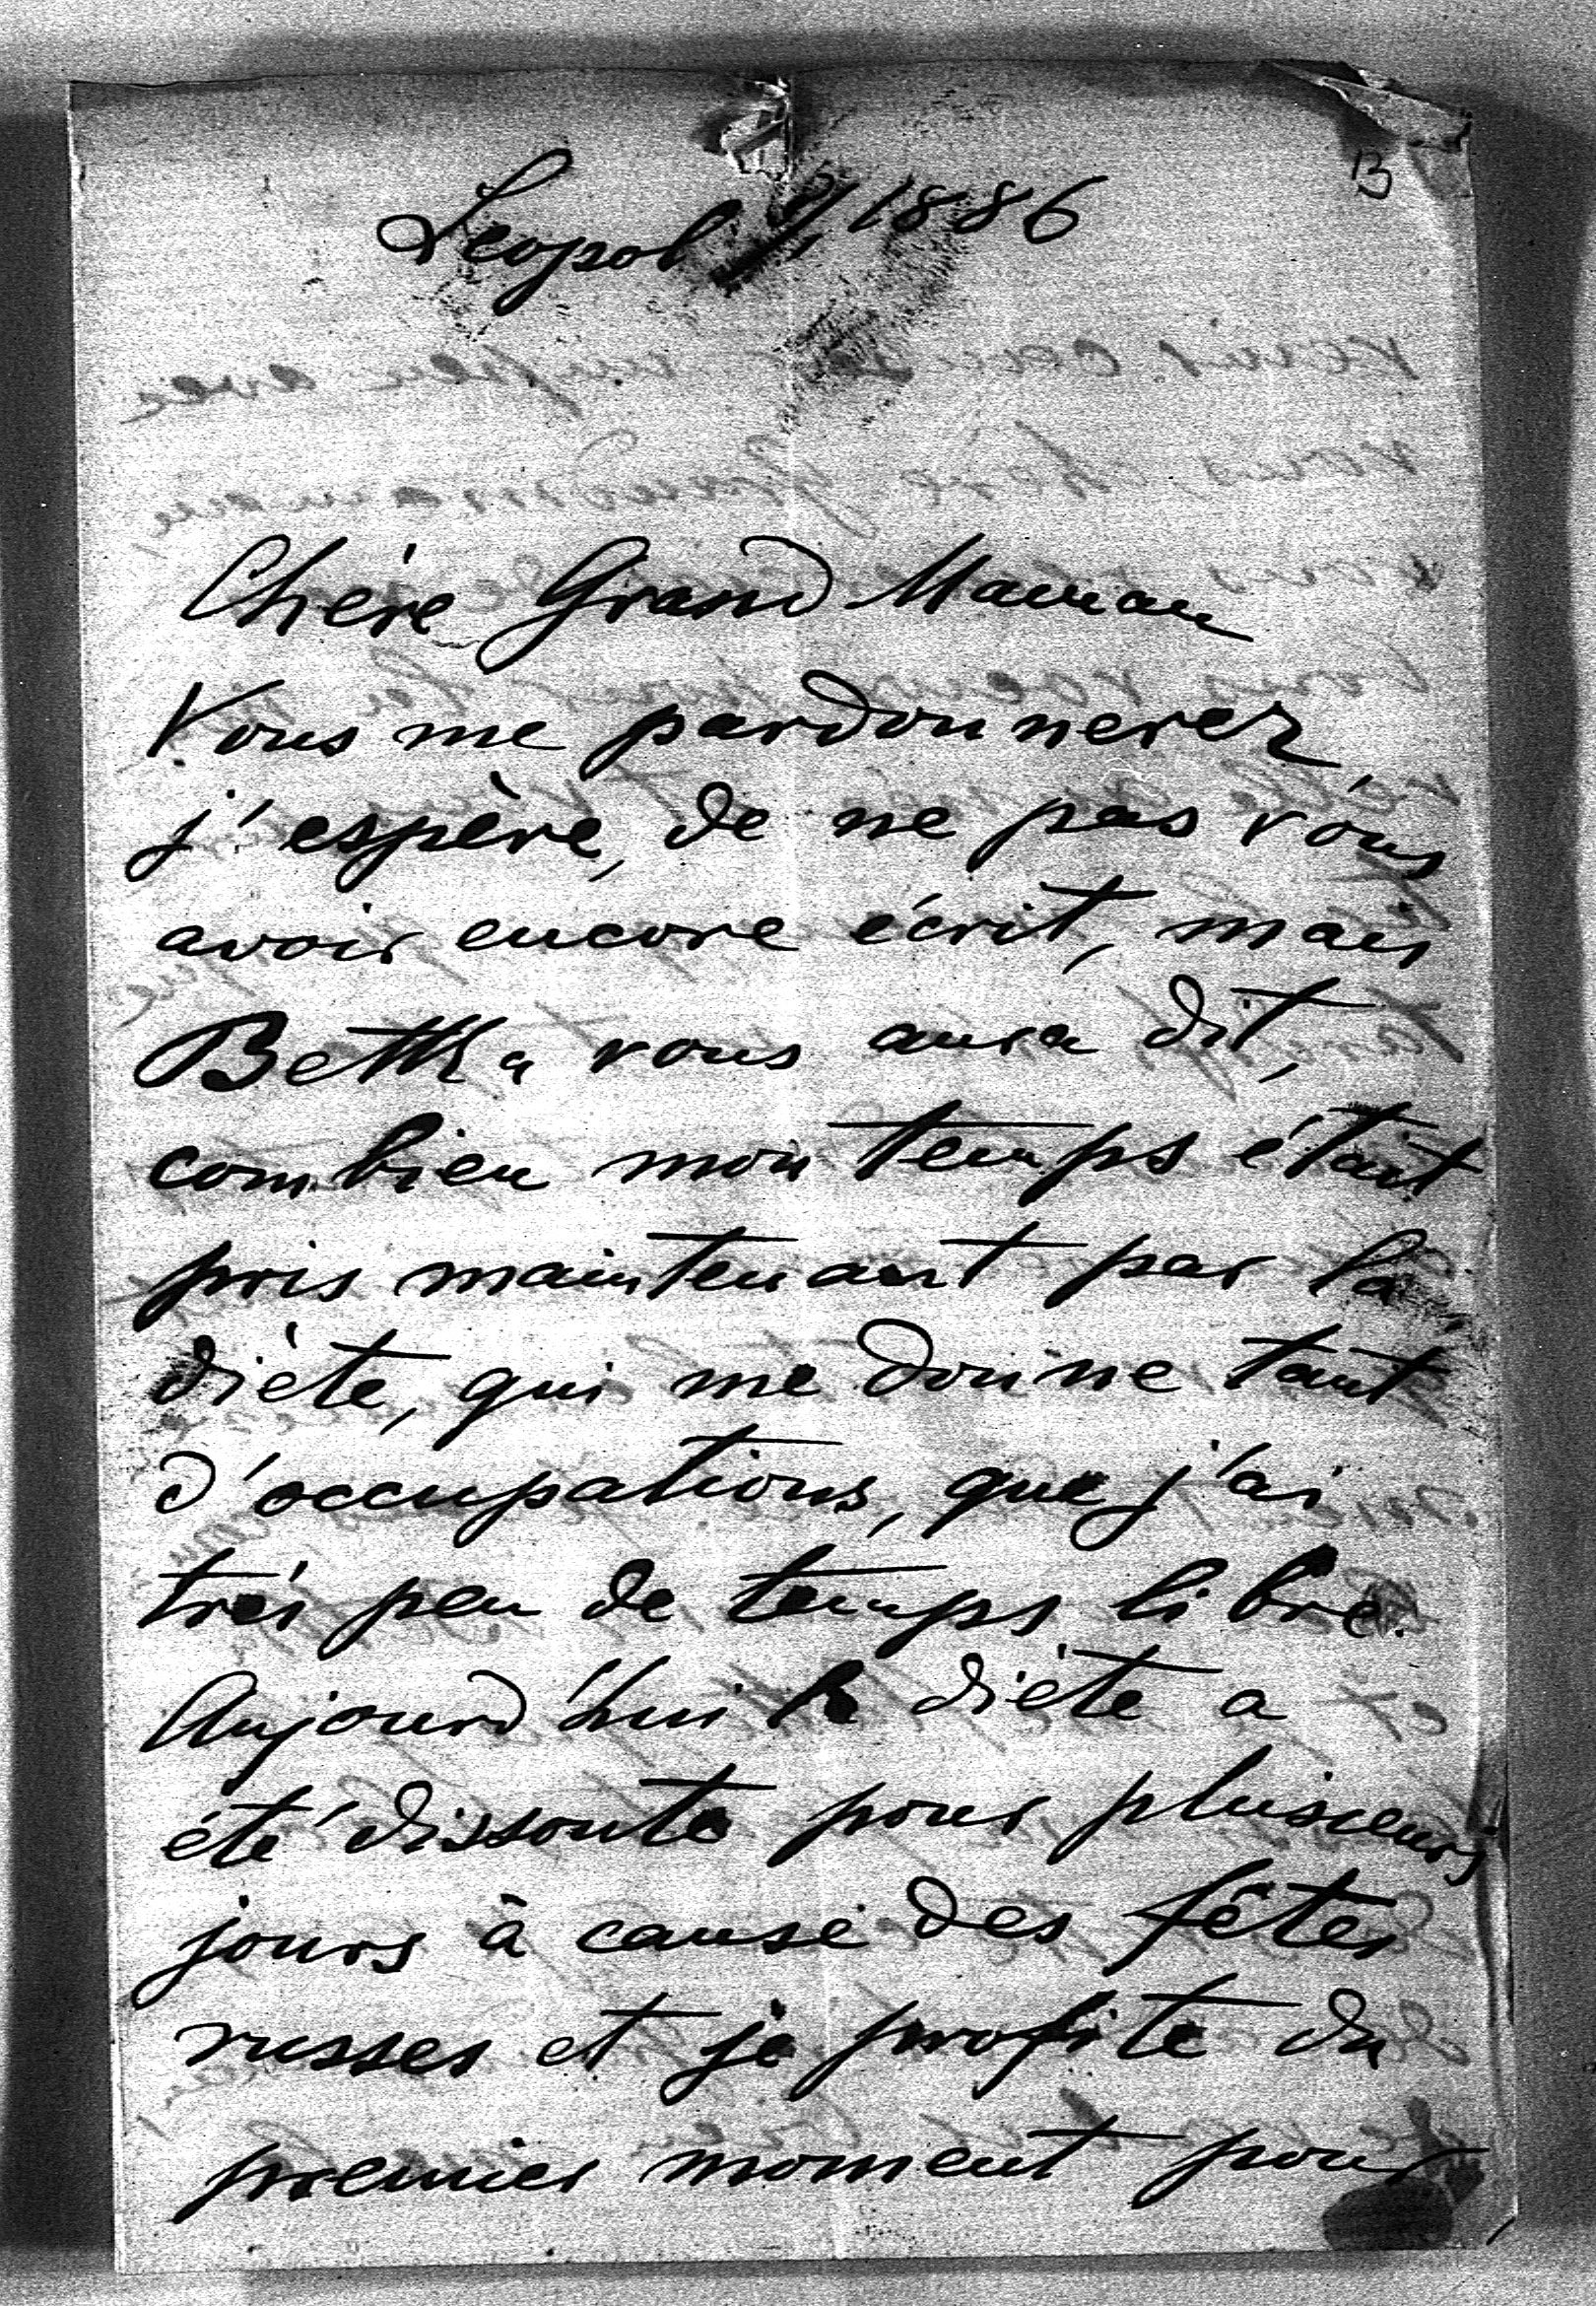 13
Leopol 1886
Chère Grand Maman
Vous me pardonnerez,
j'espère, de ne pas vous
avoir encore écrit, mais
Betka vous aura dit,
combien mon temps était
pris maintenant par la
diète, qui me donne tant
d'occupations, que j'ai
très peu de temps libre.
Aujourd'hui la diète a
été dissoute pour plusieurs
jours à cause des fêtes
russes et je profite du
premier moment pour